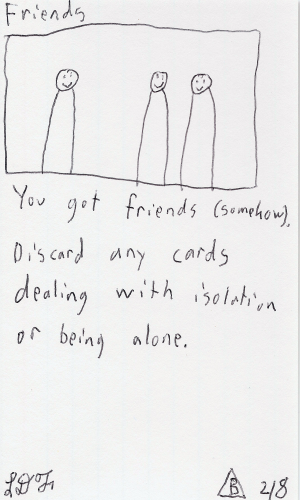 Friends
You got friends (somehow).
Discard any cards
dealing with isolation
or being alone.
B 2/8